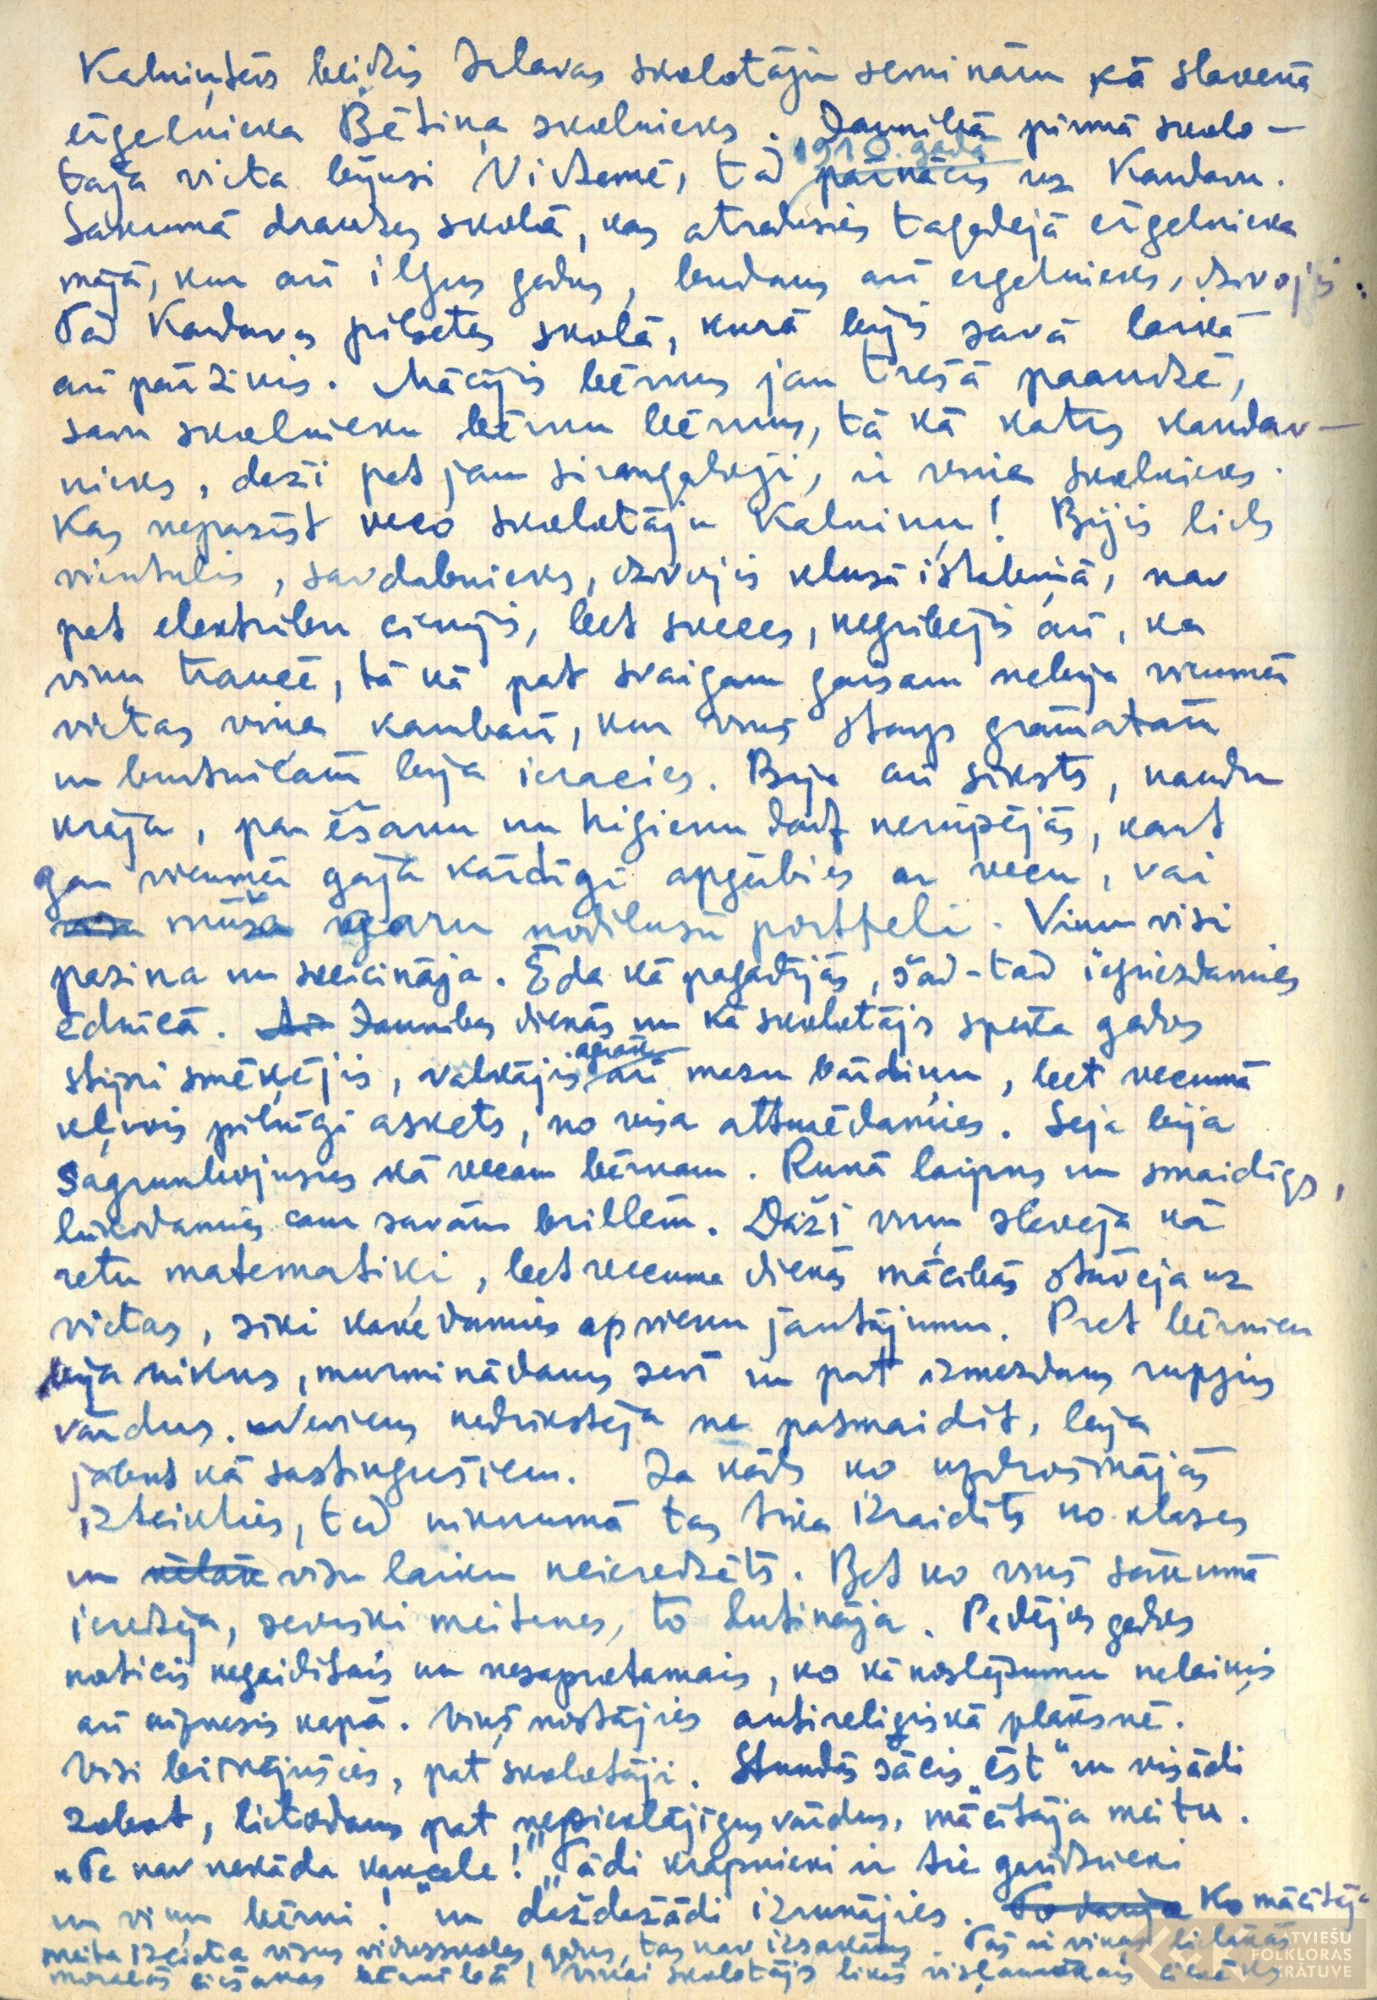 Kalniņš beidzis Irlavas skolotāju semināru kā slavenā
ērģelnieka Bētiņa skolnieks. Jaunībā pirmā skolo-
tāja vieta bijusi Vidzemē, tad 1910. gadā pārnācis uz Kandavu.
Sākumā draudzes skolā, kas atradusies tagadējā ērģelnieka
mājā, kur arī ilgus gadus, būdams arī ērģelnieks, dzīvojis.
Tad Kandavas pilsētas skolā, kurā bijis savā laikā
arī pārzinis. Mācījis bērnus jau trešā paaudzē,
savu skolnieku bērnu bērnus, tā kā katrs kandav-
nieks, daži pat jau sirmgalvji, ir viņa skolnieks.
Kas nepazīst veco skolotāju Kalniņu! Bijis liels
vientulis, savdabnieks, dzīvojis klusā istabiņā, nav
pat elektrību cienījis, bet sveces, negribējis arī, ka
viņu traucē, tā kā pat svaigam gaisam nebija vienmēr
vietas viņa kambarī, kur viņš starp grāmatām
un burtnīcām bija ieracies. Bija arī sīksts, naudu
krāja, par ēšanu un higiēnu daudz nerūpējās, kaut
gan vienmēr gāja kārtīgi apģērbies ar vecu, vai
mūža garu nodilušu portfeli. Viņu visi
pazina un sveicināja. Ēda kā pagadījās, šad-tad iegriezdamies
ēdnīcā. Jaunības dienās un kā skolotājs spēka gados
stipri smēķējis, valkājis agrāk arī mazu bārdiņu, bet vecumā
kļuvis pilnīgi askēts, no visa atsacēdamies. Seja bija
sagrumbojusies kā vecam bērnam. Runā laipns un smaidīgs,
lūkodamies caur savām brillēm. Daži viņu slavēja kā
retu matemātiķi, bet vecuma dienās mācībās stāvēja uz
vietas, sīki kavēdamies ap vienu jautājumu. Pret bērniem
bija nikns, murminādams sevī un pat izmezdams rupjus
vārdus. Neviens nedrīkstēja ne pasmaidīt, bija
jābūt kā sastingušiem. Ja kāds ko uzdrošinājās
izteikties, tad niknumā tas tika izraidīts no klases
un vēlāk visu laiku neieredzēts. Bet ko viņš sākumā
ieredzēja, sevišķi meitenes, to lutināja. Pēdējos gados
noticis negaidītais un nesaprotamais, ko kā noslēpumu nelaiķis
arī aiznesis kapā. Viņš nostājies antireliģiskā plāksnē.
Visi brīnījušies, pat skolotāji. Stundās sācis "ēst" un visādi
zobot, lietodams pat nepieklājīgus vārdus, mācītāja meitu.
"Te nav nekāda kancele!" "Tādi krāpnieki ir tie garīdznieki
un viņu bērni!" un dažādažādi izrunājies. Ko mācītāja
meita izcieta visus vidusskolas gadus, tas nav izsakāms. Tās ir viņas lielākās
morālās ciešanas bērnībā! Viņai skolotājs likās vislaunākais cilvēks
LATVIEŠU
FOLKLORAS
KRĀTUVE